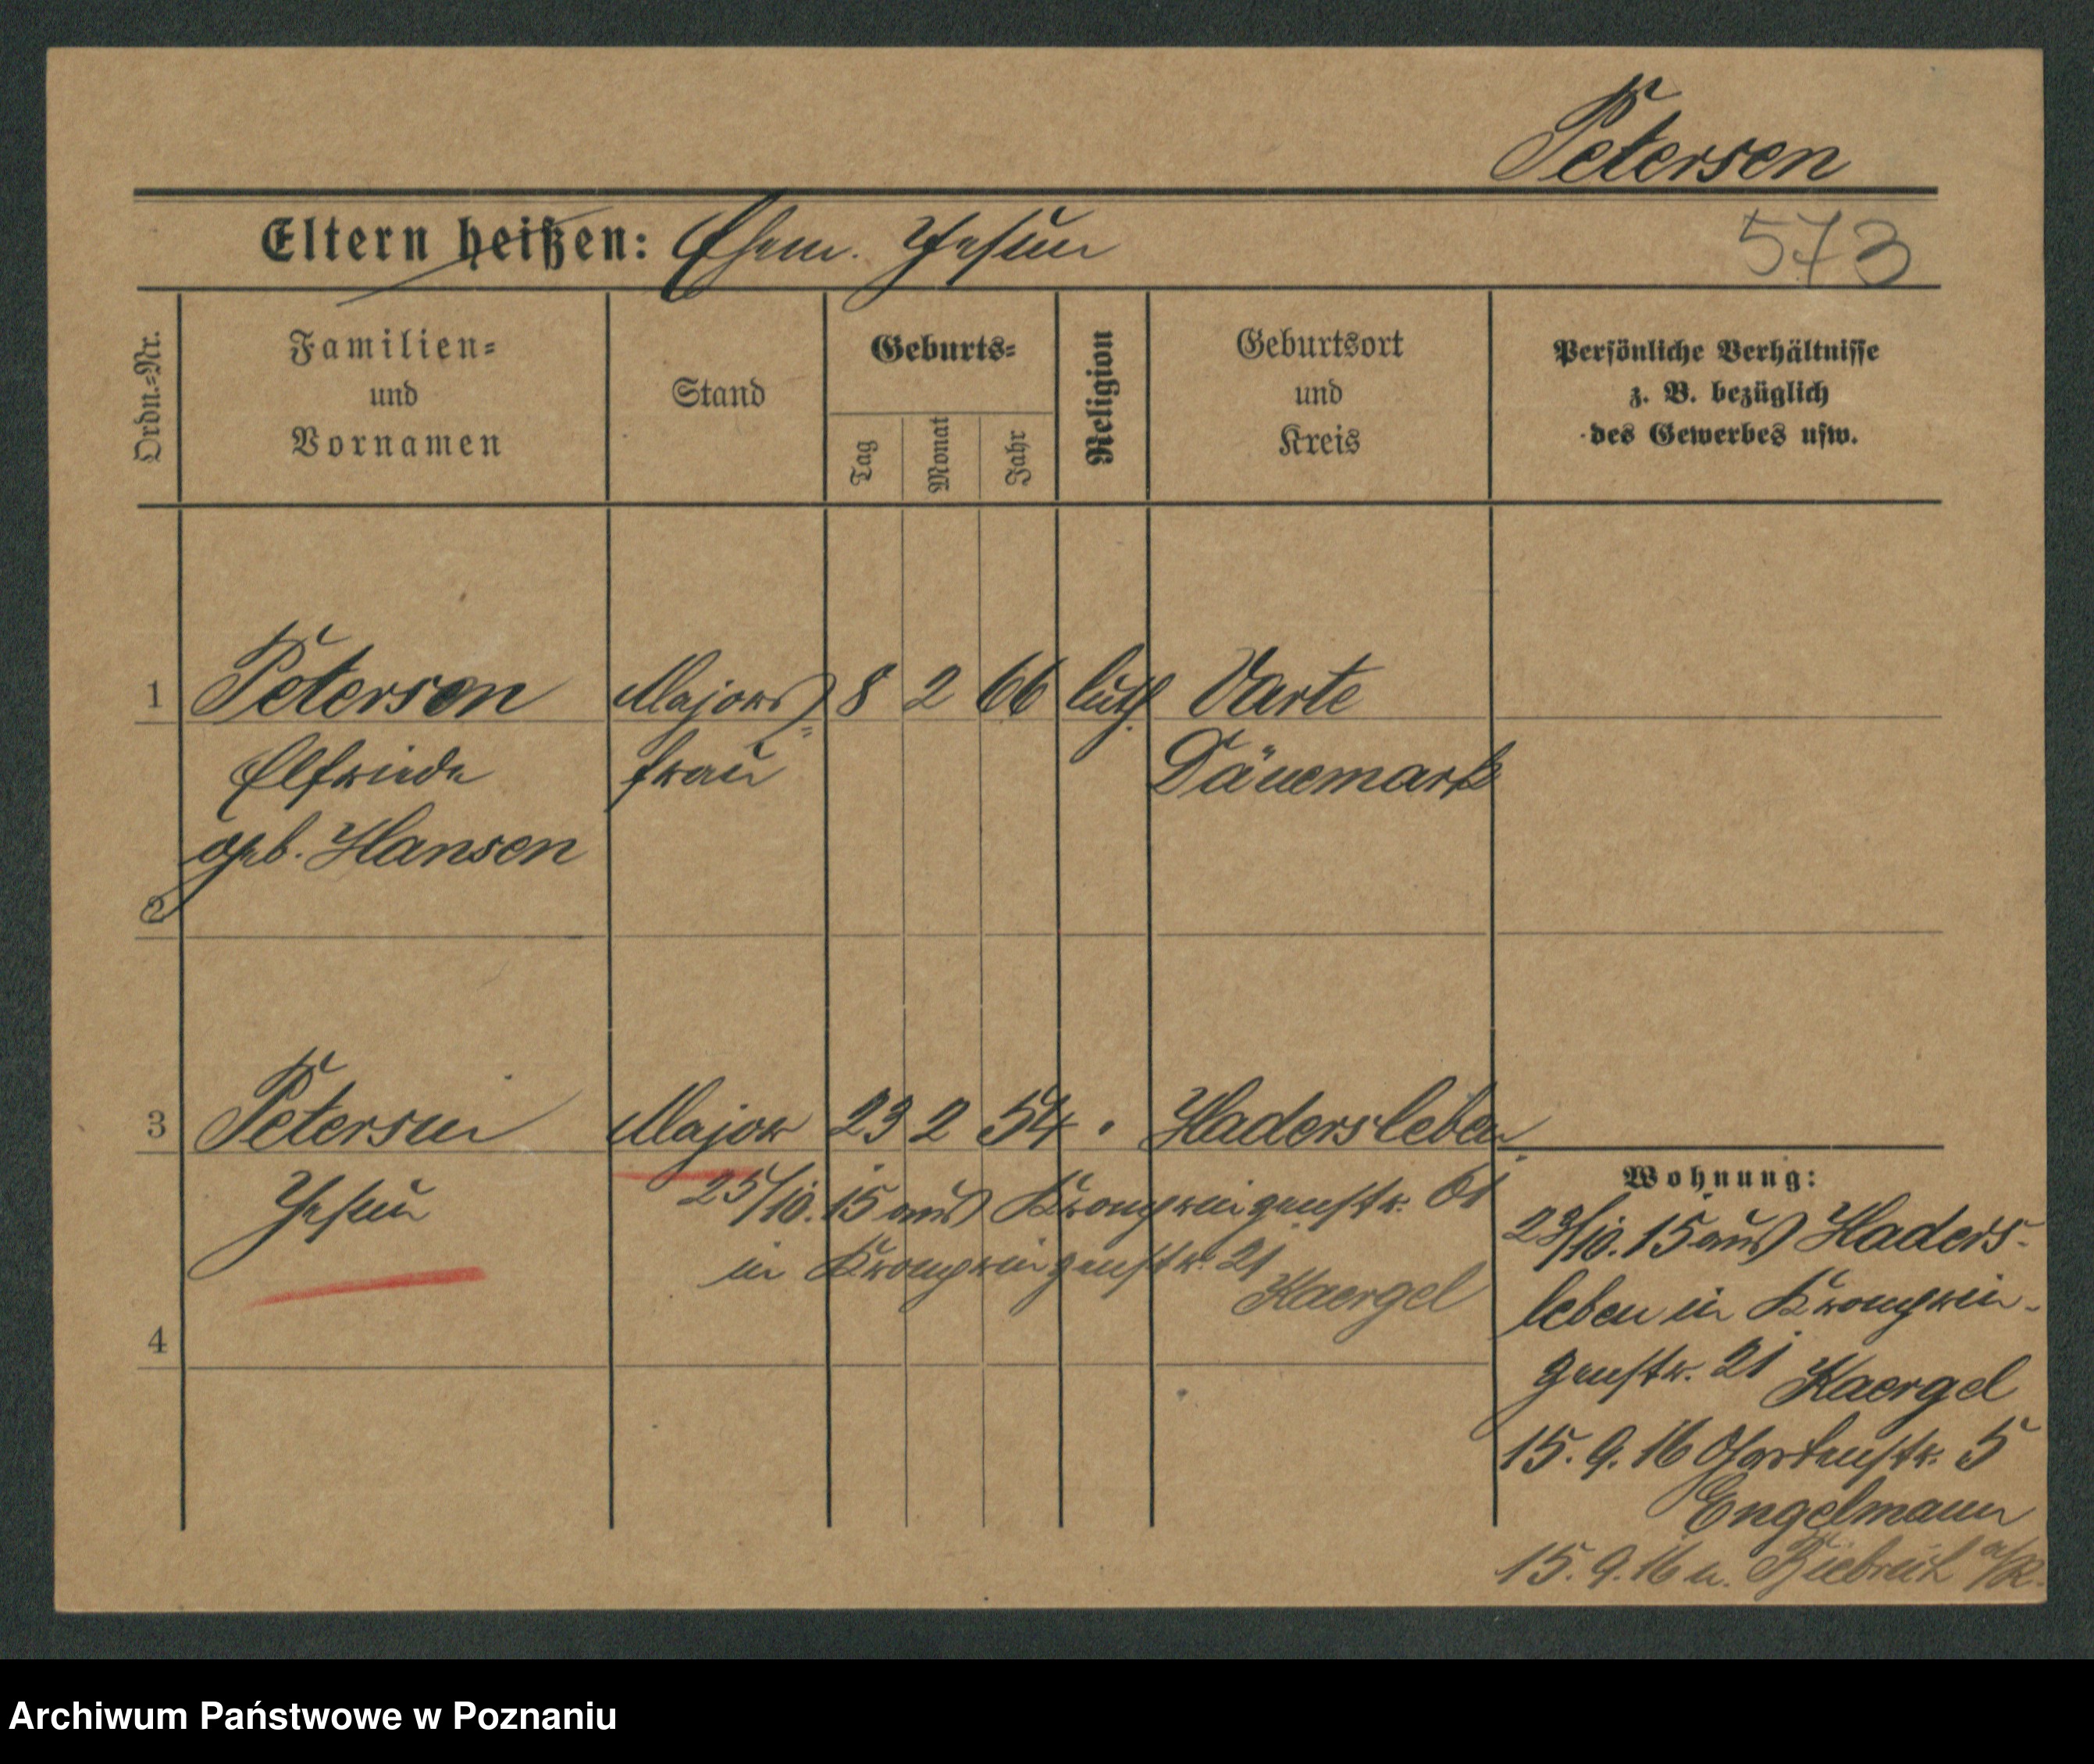 Petersen
Eltern heißen: Ehem. Jesun
573
Ordn.-Nr.
Familien-
und
Vornamen
Stand
Geburts-
Tag
Monat
Jahr
Religion
Geburtsort
und
Kreis
Persönliche Verhältnisse
z. B. bezüglich
des Gewerbes usw.
1 Petersen Majors- 8 2 66 luth. Varte
Elfriede frau Dänemark
geb. Hansen
2
3 Petersen Major 23 2 54 Hadersleben
25/10.15 aus Kronprinzenstr. 61
in Kronprinzenstr. 21
Kaergel
4
Wohnung:
23/10.15 aus Haders-
leben in Kronprin-
zenstr. 21 Kaergel
15.9.16 Gartenstr. 5
Engelmann
15.9.16 n. Biebrich a/R.
Archiwum Państwowe w Poznaniu